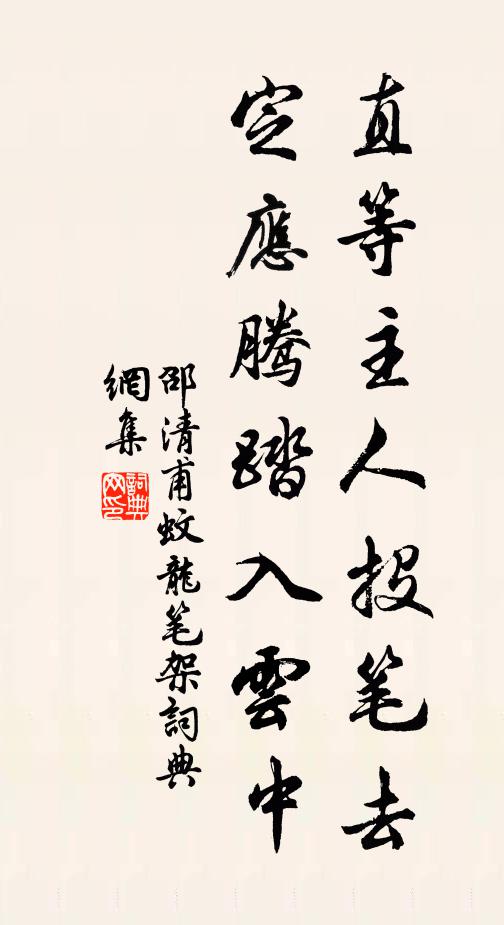 直等主人投笔去
定應腾踏入雲中
邵清甫蚊龍笔架詞典
網集
詞典網印